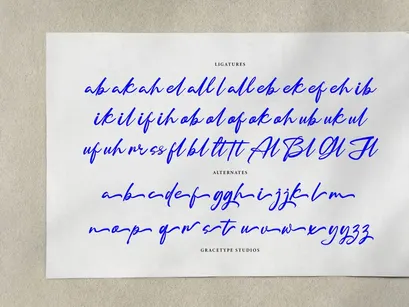 LIGATURES
ab ak ah el all l all eb ek ef eh ib
ik il if ih ob ol of ok oh ub uk ul
uf uh rr ss fl bl tt tt Al Bl Ol Jl
ALTERNATES
a b c d e f g g h i j j k l m
n o p q r s t u v w x y y z z
GRACETYPE STUDIOS